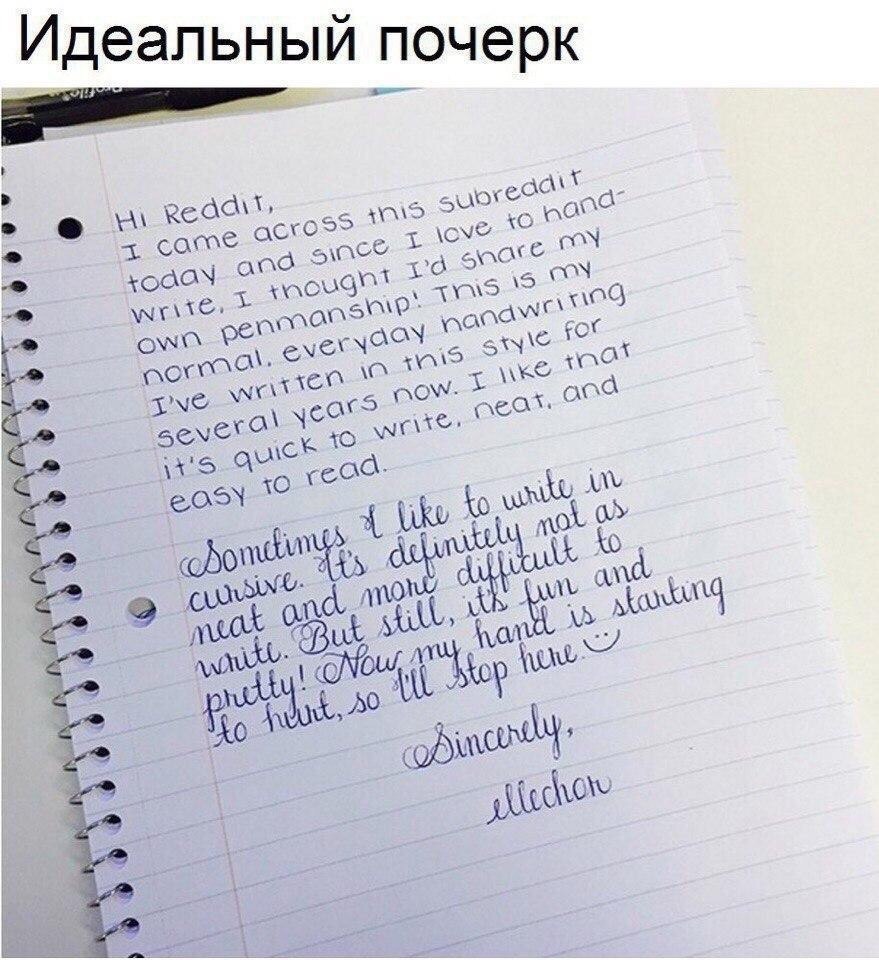 Идеальный почерк
Profile
Hi Reddit,
I came across this subreddit
today and since I love to hand-
write, I thought I'd share my
own penmanship! This is my
normal, everyday handwriting
I've written in this style for
several years now. I like that
it's quick to write, neat, and
easy to read.
Sometimes I like to write in
cursive. It's definitely not as
neat and more difficult to
write. But still, it's fun and
pretty! Now my hand is starting
to hurt, so I'll stop here.
Sincerely,
ellechor